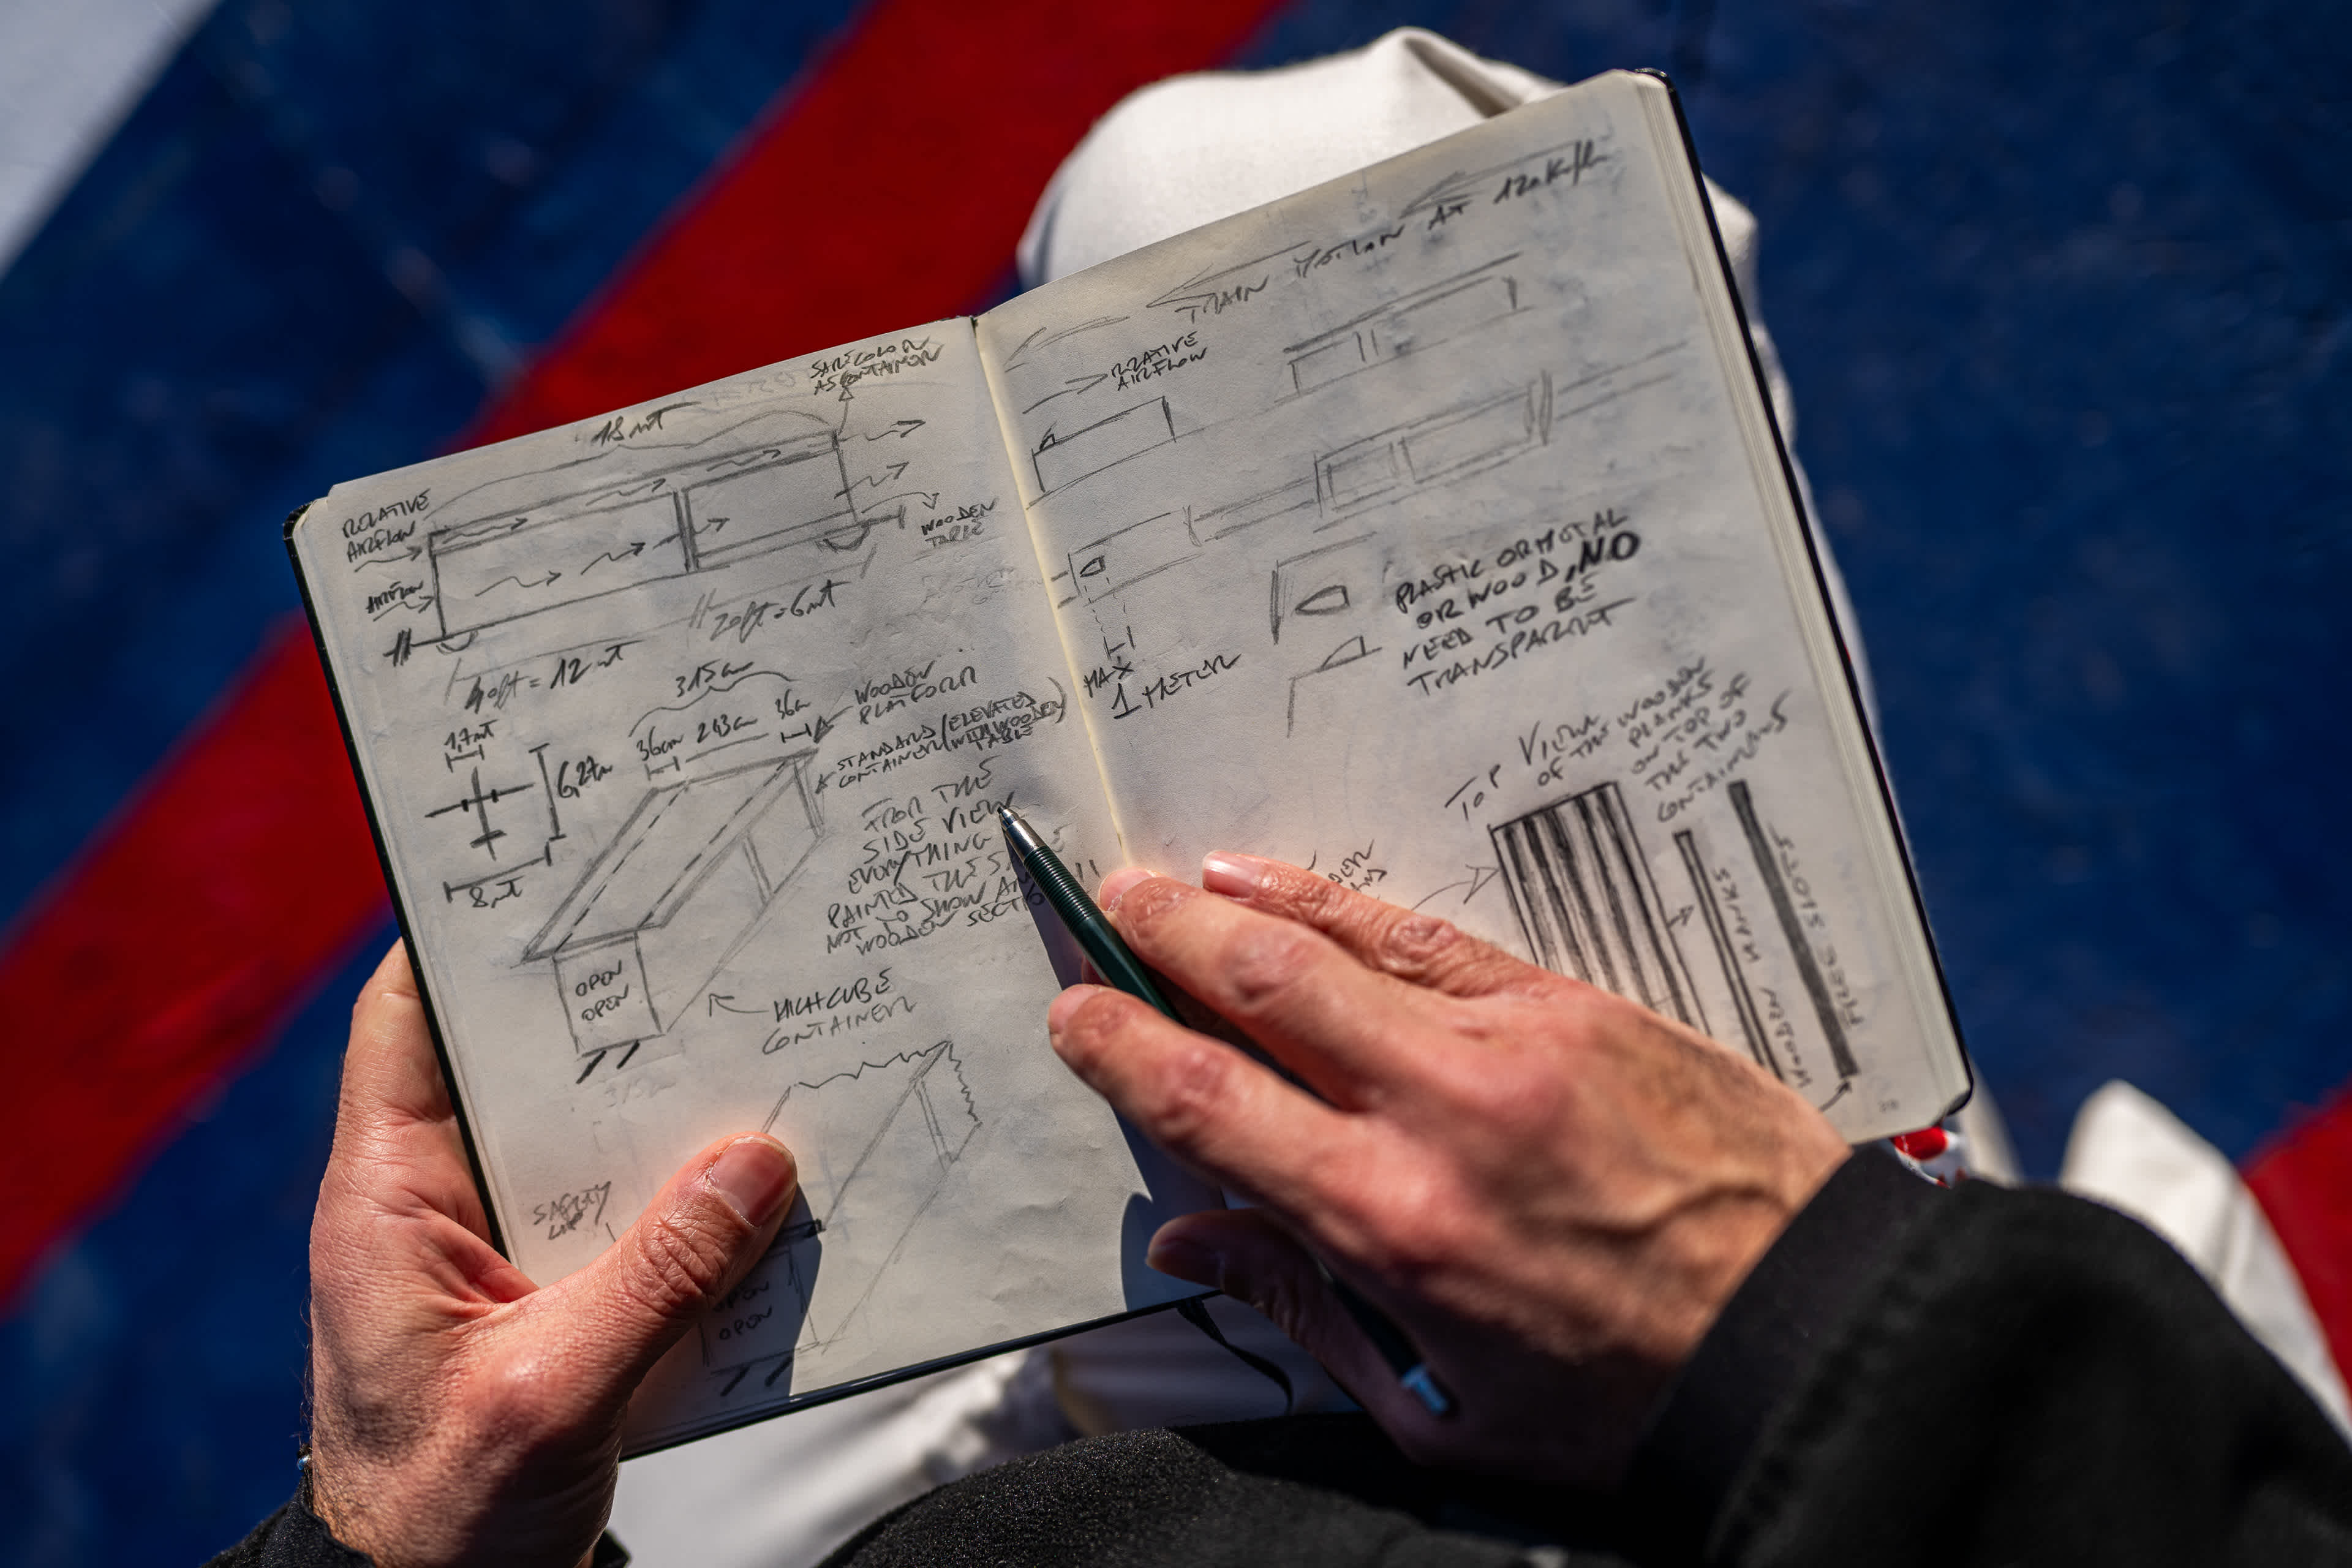 SAME COLOR
AS CONTAINER
18 mt
RELATIVE
AIRFLOW
AIRFLOW
WOODEN
TABLE
20ft = 6mt
40ft = 12 mt
315cm
36cm 243cm 36cm
WOODEN
PLATFORM
1,7mt
6,27m
8mt
STANDARD (ELEVATED
CONTAINER WITH WOODEN)
TABLE
FROM THE
SIDE VIEW
EVERYTHING
PAINTED THE
NOT TO SHOW
WOODEN
OPEN
OPEN
HIGHCUBE
CONTAINER
SAFETY
OPEN
OPEN
TRAIN MOTION AT 120 Km/h
RELATIVE
AIRFLOW
MAX
1 METER
PLASTIC OR METAL
OR WOOD, NO
NEED TO BE
TRANSPARENT
TOP VIEW
OF THE WOODEN
PLANKS
ON TOP OF
THE TWO
CONTAINERS
WOODEN PLANKS
FREE SLOTS